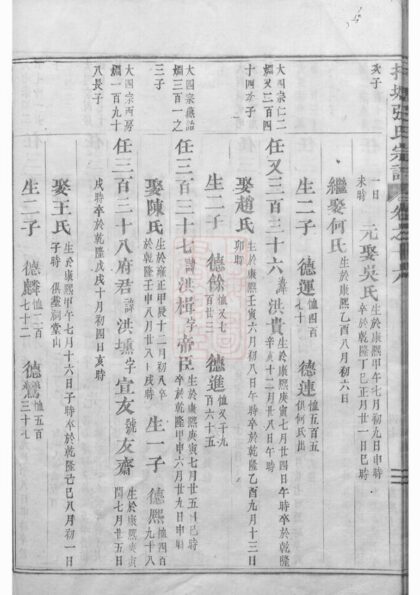 次子
一日
未時
元娶吳氏 生於康熙甲午七月初九日申時
卒於乾隆丁巳正月廿一日巳時
繼娶何氏 生於康熙乙酉八月初六日
生二子 德運 恤四百七十
德連 恤五百五 俱何氏出
大四宗仁二
烟又二百四
十四子
任又三百三十六 諱洪貴 生於康熙庚寅七月廿四日午時卒於乾隆
辛亥十二月廿八日午時
娶趙氏 生於康熙壬寅六月初八日午時卒於乾隆乙酉九月十三日
卯時
生二子 德餘 恤又七百廿三
德進 恤又千九百六十五
大四宗燕詒
烟三百一之
三子
任三百三十七 諱洪楫字帝臣 生於康熙庚寅七月廿五日巳時
卒於乾隆甲申六月廿九日申時
娶陳氏 生於雍正甲寅十二月初八午
於乾隆壬申八月廿八戌時
生一子 德熙 恤四百九十八
大四宗西房
烟一百九十
八長子
任三百三十八府君 諱洪 字宣友號友齋 生於康熙庚寅
閏七月廿五日
戌時卒於乾隆戊戌十月初四日亥時
娶王氏 生於康熙甲午七月十六日子時卒於乾隆己巳八月初一日
子時 俱塟祠堂山
生二子 德麟 恤二百七十二
德鸞 恤五百三十七